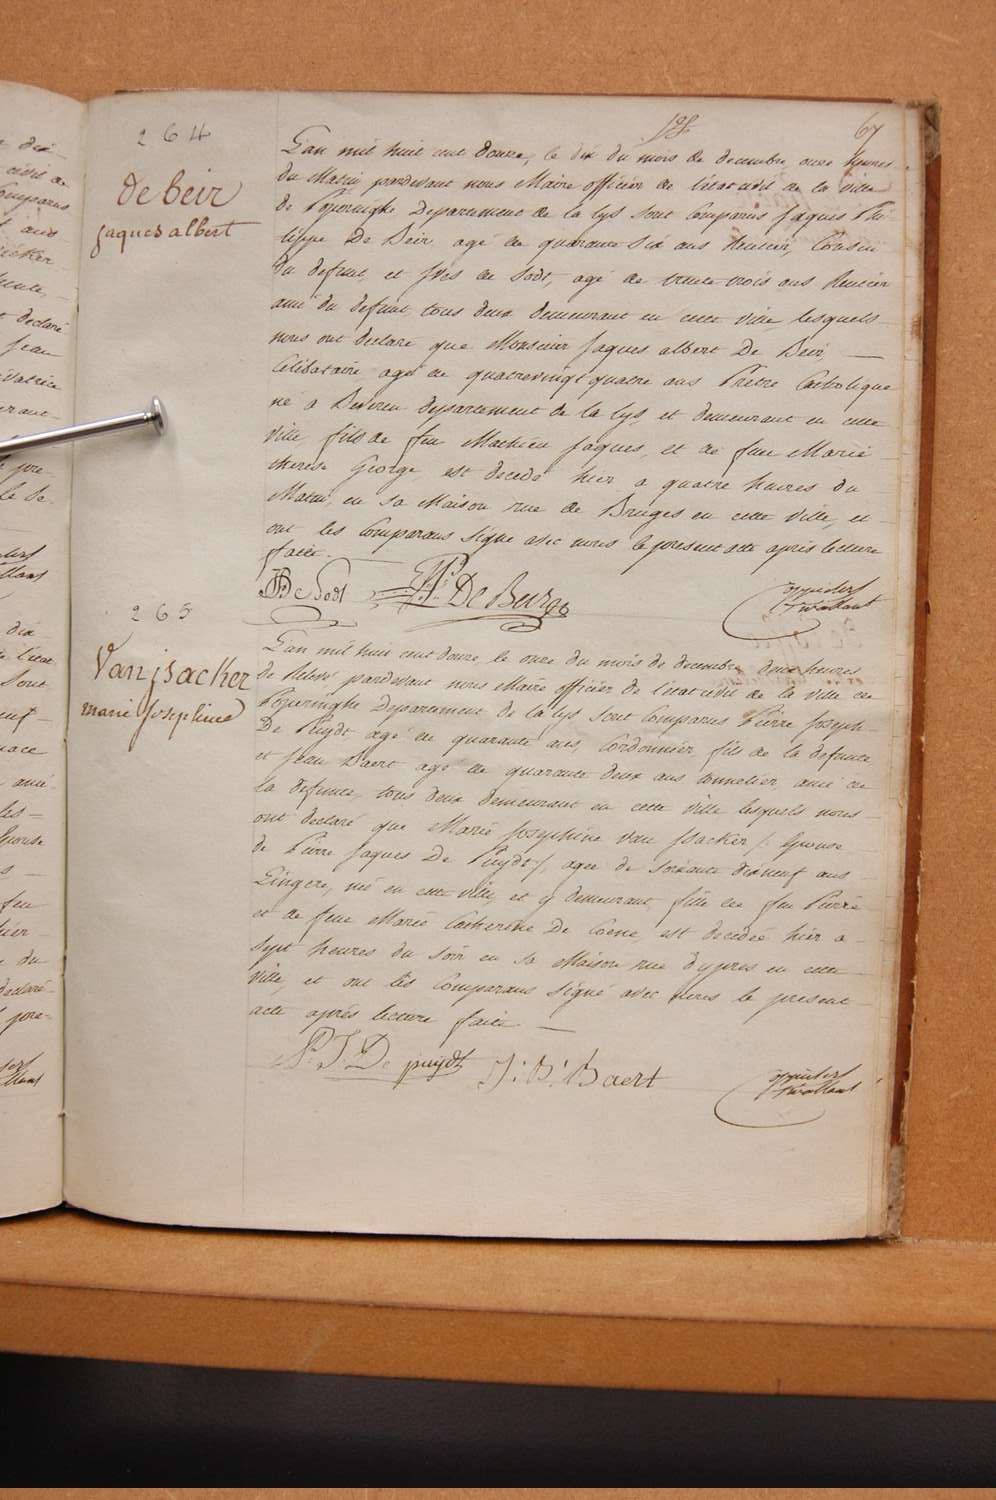 67
264
de beir
jaques albert
L'an mil huit cent douze, le dix du mois de decembre, onze heures
du Matin pardevant nous Maire officier de l'état civil de la ville
de Poperinghe Departement de la Lys sont Comparus Jaques Phi-
lippe De Beir agé de quarante six ans Rentier, Cousin
du defunt, et Yves de Sodt, agé de trente trois ans Rentier
ami du defunt tous deux demeurant en cette ville lesquels
nous ont declaré que Monsieur Jaques albert De Beir, —
Célibataire agé de quatrevingt quatre ans Prêtre Catholique
né a departement de la Lys, et demeurant en cette
ville fils de feu Mathieu Jaques, et de feue Marie
therese George, est decedé hier a quatre heures du
Matin, en sa Maison rue de Bruges en cette ville, et
ont les Comparans Signé avec nous le present acte après lecture
faite.
De Sodt De Beir
265
Van jsacker
marie josephine
L'an mil huit cent douze le onze du mois de decembre deux heures
de Relevé pardevant nous Maire officier de l'état civil de la ville de
Poperinghe Departement de la Lys sont Comparus Pierre Joseph-
De Puydt agé de quarante ans, Cordonnier, fils de la defunte,
et Jean Baert agé de quarante deux ans tonnelier, ami de
la defunte, tous deux demeurant en cette ville lesquels nous-
ont declaré que Marie Josephine van Jsacker /: Epouse
de Pierre Jaques De Puydt/, agée de soixante dixneuf ans -
Lingere, né en cette ville, et y demeurant fille de feu Pierre
et de feue Marie Catherine De Coene, est decedée hier a
sept heures du soir en sa Maison rue d'ypres en cette
ville, et ont les Comparans Signé avec nous le present
acte après lecture faite —
P. J. De puydt J. B. Baert